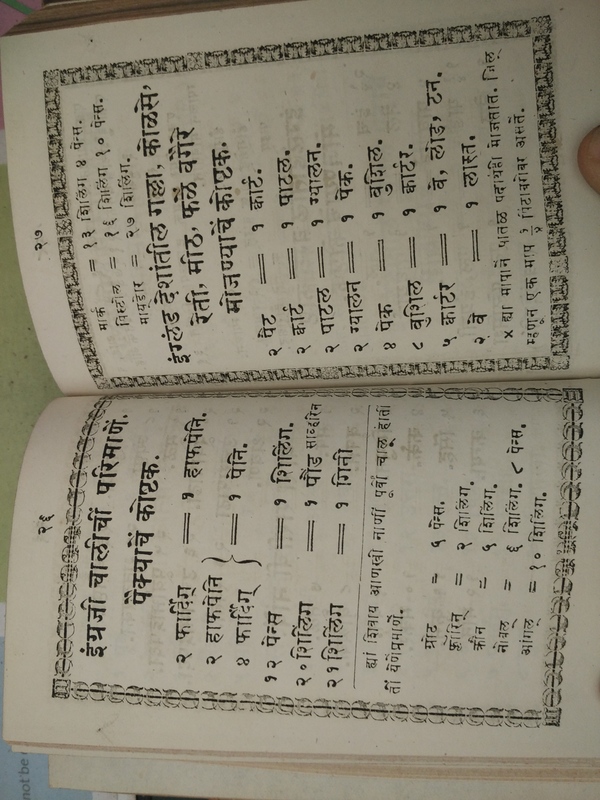 २६
इंग्रजी चालीचीं परिमाणें.
पैक्याचें कोष्टक.
२ फार्दिंग् = १ हाफपेनि.
२ हाफपेनि
४ फार्दिंग् } = १ पेनि.
१२ पेन्स = १ शिलिंग.
२० शिलिंग = १ पौंड साव्हरिन
२१ शिलिंग = १ गिनी
ह्यां शिवाय आणखी नाणीं पूर्वी चालू होतीं
तीं येणेंप्रमाणें.
ग्रोट = ५ पेन्स.
फ्लोरिन् = २ शिलिंग.
क्रौन = ५ शिलिंग.
नोबल् = ६ शिलिंग. ८ पेन्स.
आंगल् = १० शिलिंग.
२७
मार्क = १३ शिलिंग ४ पेन्स.
पिस्टोल = १६ शिलिंग १० पेन्स.
मायडोर = २७ शिलिंग.
इंग्लंड देशांतील गल्ला, कोळसे,
रेती, मीठ, फळें वगैरे
मोजण्याचें कोष्टक.
२ पैंट = १ कार्ट.
२ कार्ट = १ पाटल.
२ पाटल = १ ग्यालन.
२ ग्यालन = १ पेक.
४ पेक = १ बुशिल.
८ बुशिल = १ कार्टर.
५ कार्टर = १ वे, लोड, टन.
२ वे = १ लास्त.
× ह्या मापानें पातळ पदार्थही मोजतात. जिल्
म्हणून एक माप ¼ पिंटाबरोबर असतें.